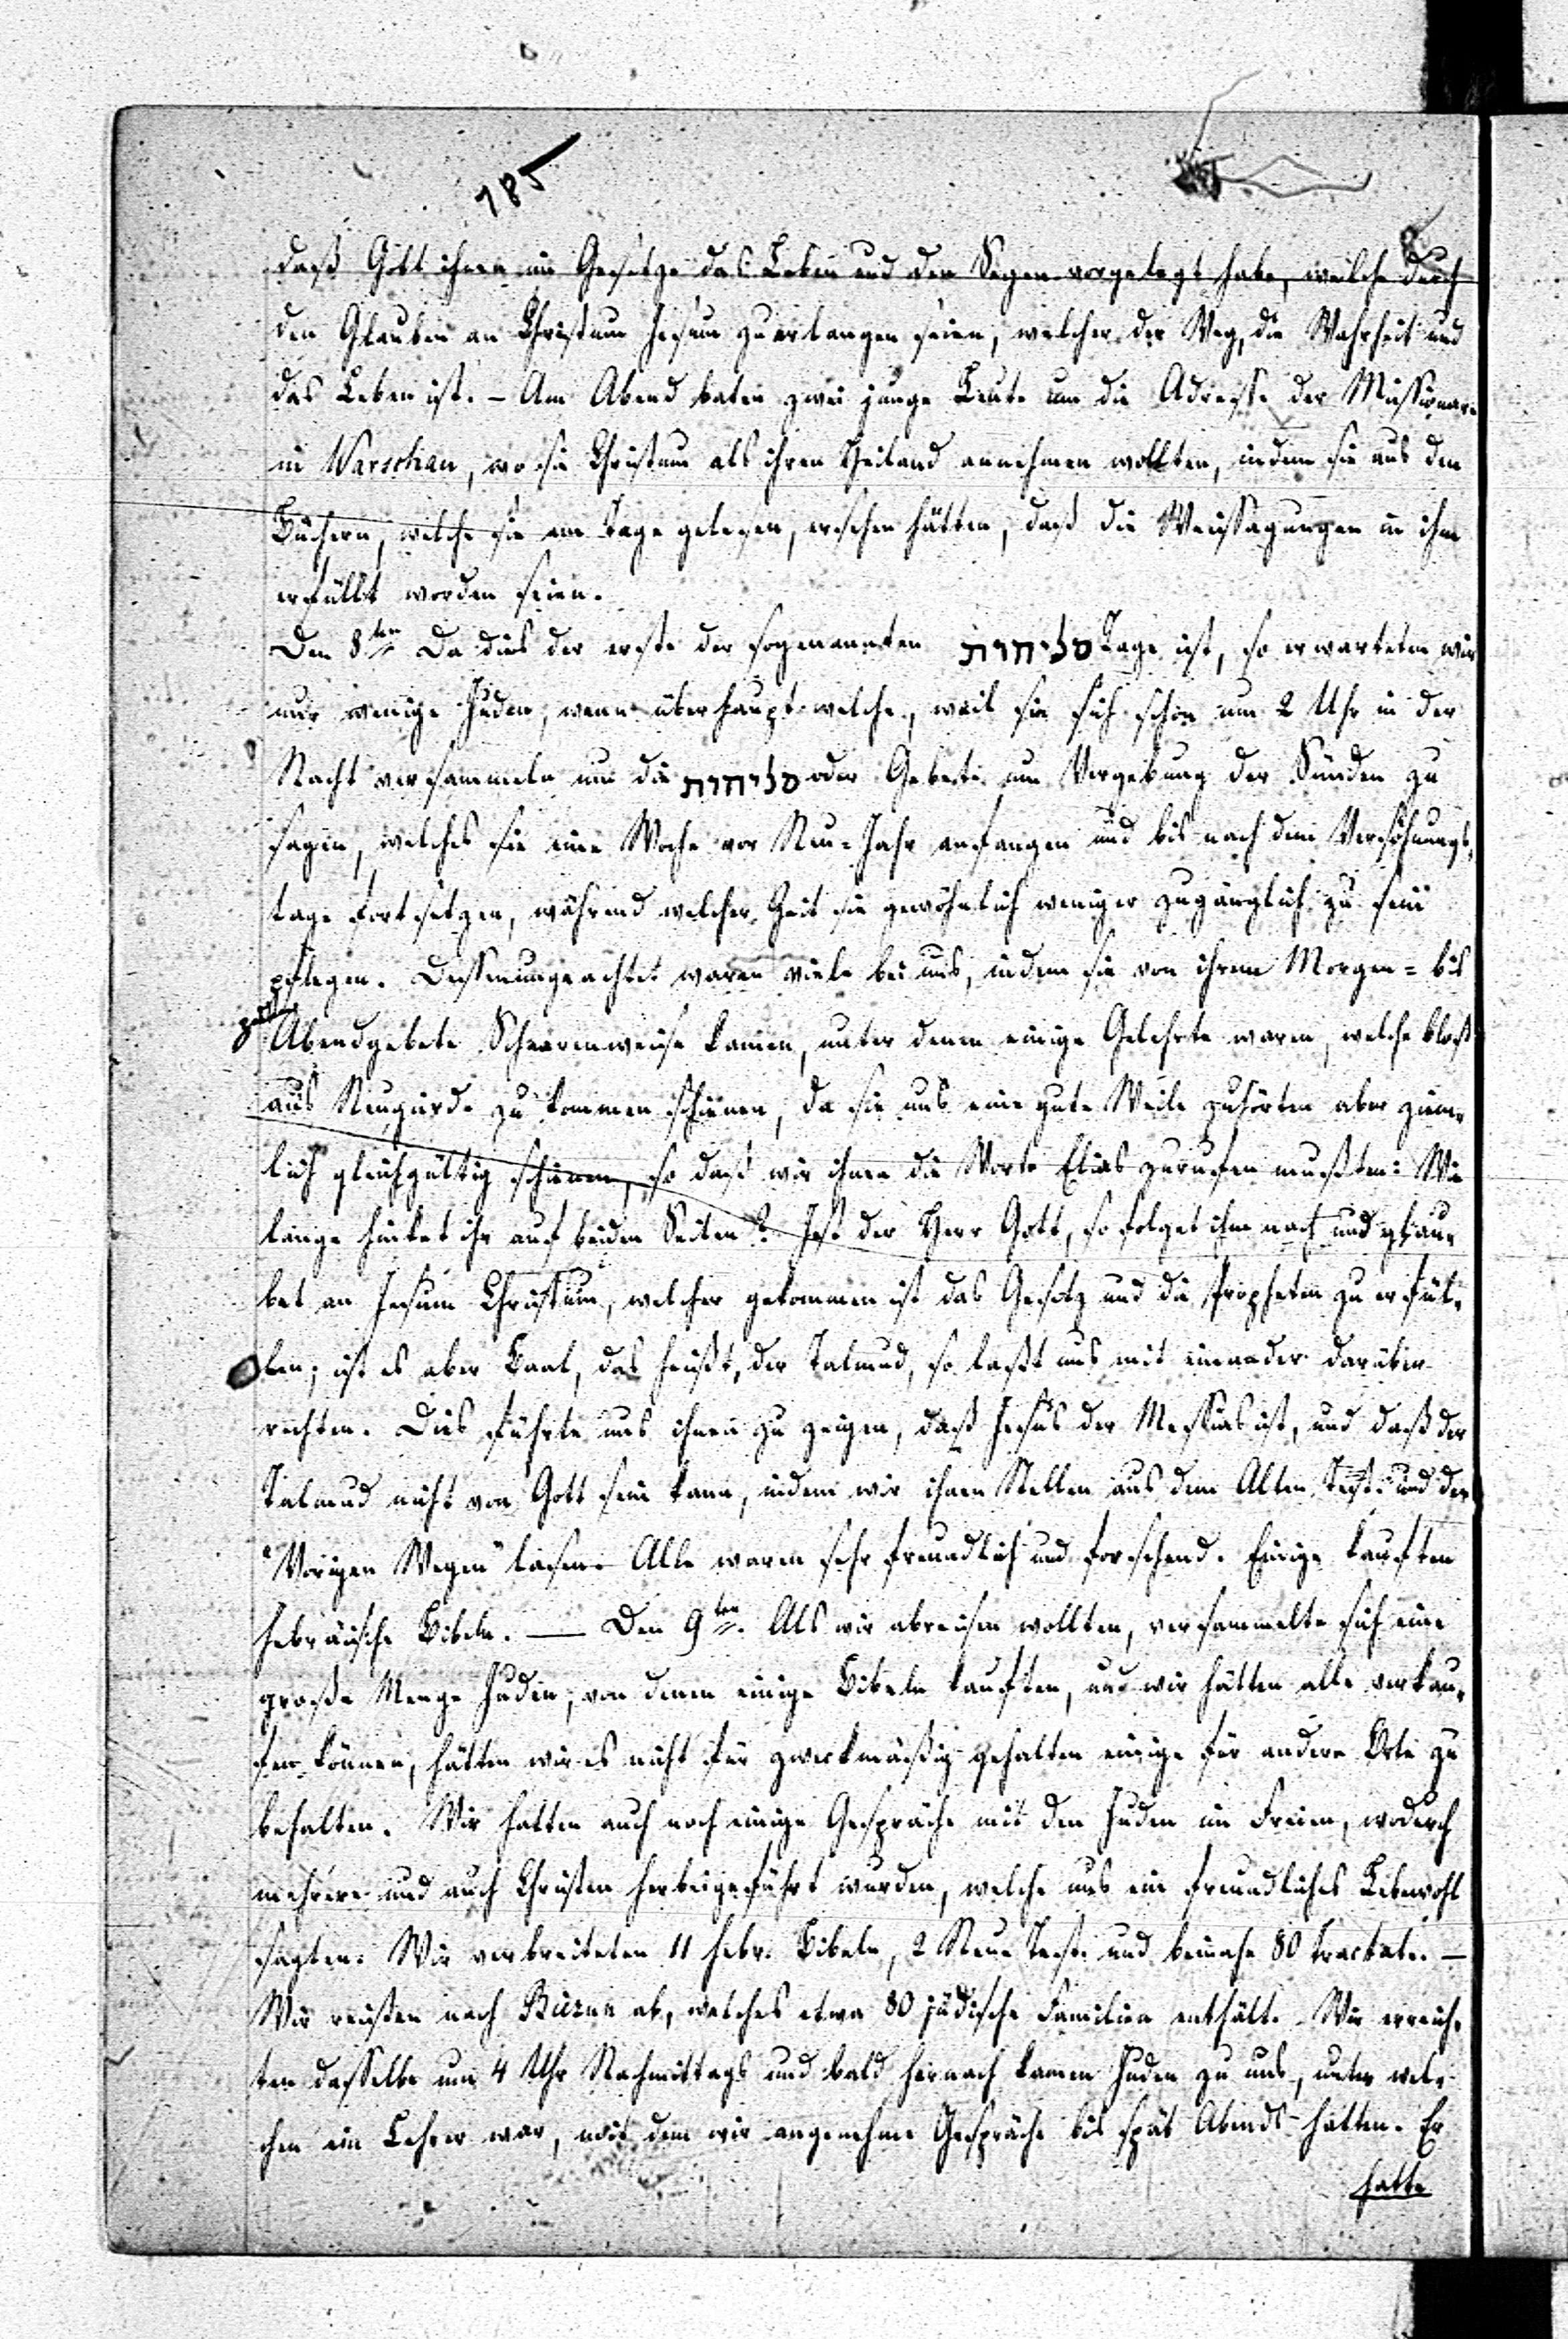 185
daß Gott ihnen im Gesetze das Leben und den Segen vorgelegt habe, welche durch
den Glauben an Christum Jesum zu erlangen seien, welcher der Weg, die Wahrheit und
das Leben ist. – Am Abend baten zwei junge Leute um die Adresse der Missionare
in Warschau, wo sie Christum als ihren Heiland annehmen wollten, indem sie aus den
Büchern, welche sie am Tage gelesen, ersehen hätten, daß die Weissagungen in ihm
erfüllt worden seien.
Den 8ten Da dies der erste der sogenannten סליחות Tage ist, so erwarteten wir
nur wenige Juden, wenn überhaupt welche, weil sie sich schon um 2 Uhr in der
Nacht versammeln um die סליחות oder Gebete um Vergebung der Sünden zu
sagen, welches sie eine Woche vor Neu-Jahr anfangen und bis nach dem Versöhnungs-
tage fortsetzen, während welcher Zeit sie gewöhnlich weniger zugänglich zu sein
pflegen. Dessenungeachtet waren viele bei uns, indem sie von ihrem Morgen= bis
zum Abendgebete Schaarenweise kamen, unter denen einige Gelehrte waren, welche bloß
aus Neugierde zu kommen schienen, da sie uns eine gute Weile zuhörten aber ziem-
lich gleichgültig schienen, so daß wir ihnen die Worte Elias zurufen mußten: Wie
lange hinket ihr auf beiden Seiten? Ist der Herr Gott, so folget ihm nach und glau-
bet an Jesum Christum, welcher gekommen ist das Gesetz und die Propheten zu erfül-
len; ist es aber Baal, das heißt, der Talmud, so laßt uns mit einander darüber
rechten. Dies führte uns ihnen zu zeigen, daß Jesus der Messias ist, und daß der
Talmud nicht von Gott sein kann, indem wir ihnen Stellen aus dem Alten Test. und den
"Vorigen Wegen" lasen. Alle waren sehr freundlich und forschend. Einige kauften
hebräische Bibeln. — Den 9ten. Als wir abreisen wollten, versammelte sich eine
große Menge Juden, von denen einige Bibeln kauften, und wir hätten alle verkau-
fen können, hätten wir es nicht für zweckmäßig gehalten einige für andere Orte zu
behalten. Wir hatten auch noch einige Gespräche mit den Juden im Freien, wodurch
mehrere und auch Christen herbeigeführt wurden, welche uns ein freundliches Lebewohl
sagten. Wir verbreiteten 11 hebr. Bibeln, 2 Neue Test. und beinahe 80 Tractate. —
Wir reisten nach Biezun ab, welches etwa 80 jüdische Familien enthält. Wir erreich-
ten dasselbe um 4 Uhr Nachmittags und bald hernach kamen Juden zu uns, unter wel-
chen ein Lehrer war, mit dem wir angenehme Gespräche bis spät Abends hatten. Er
hatte